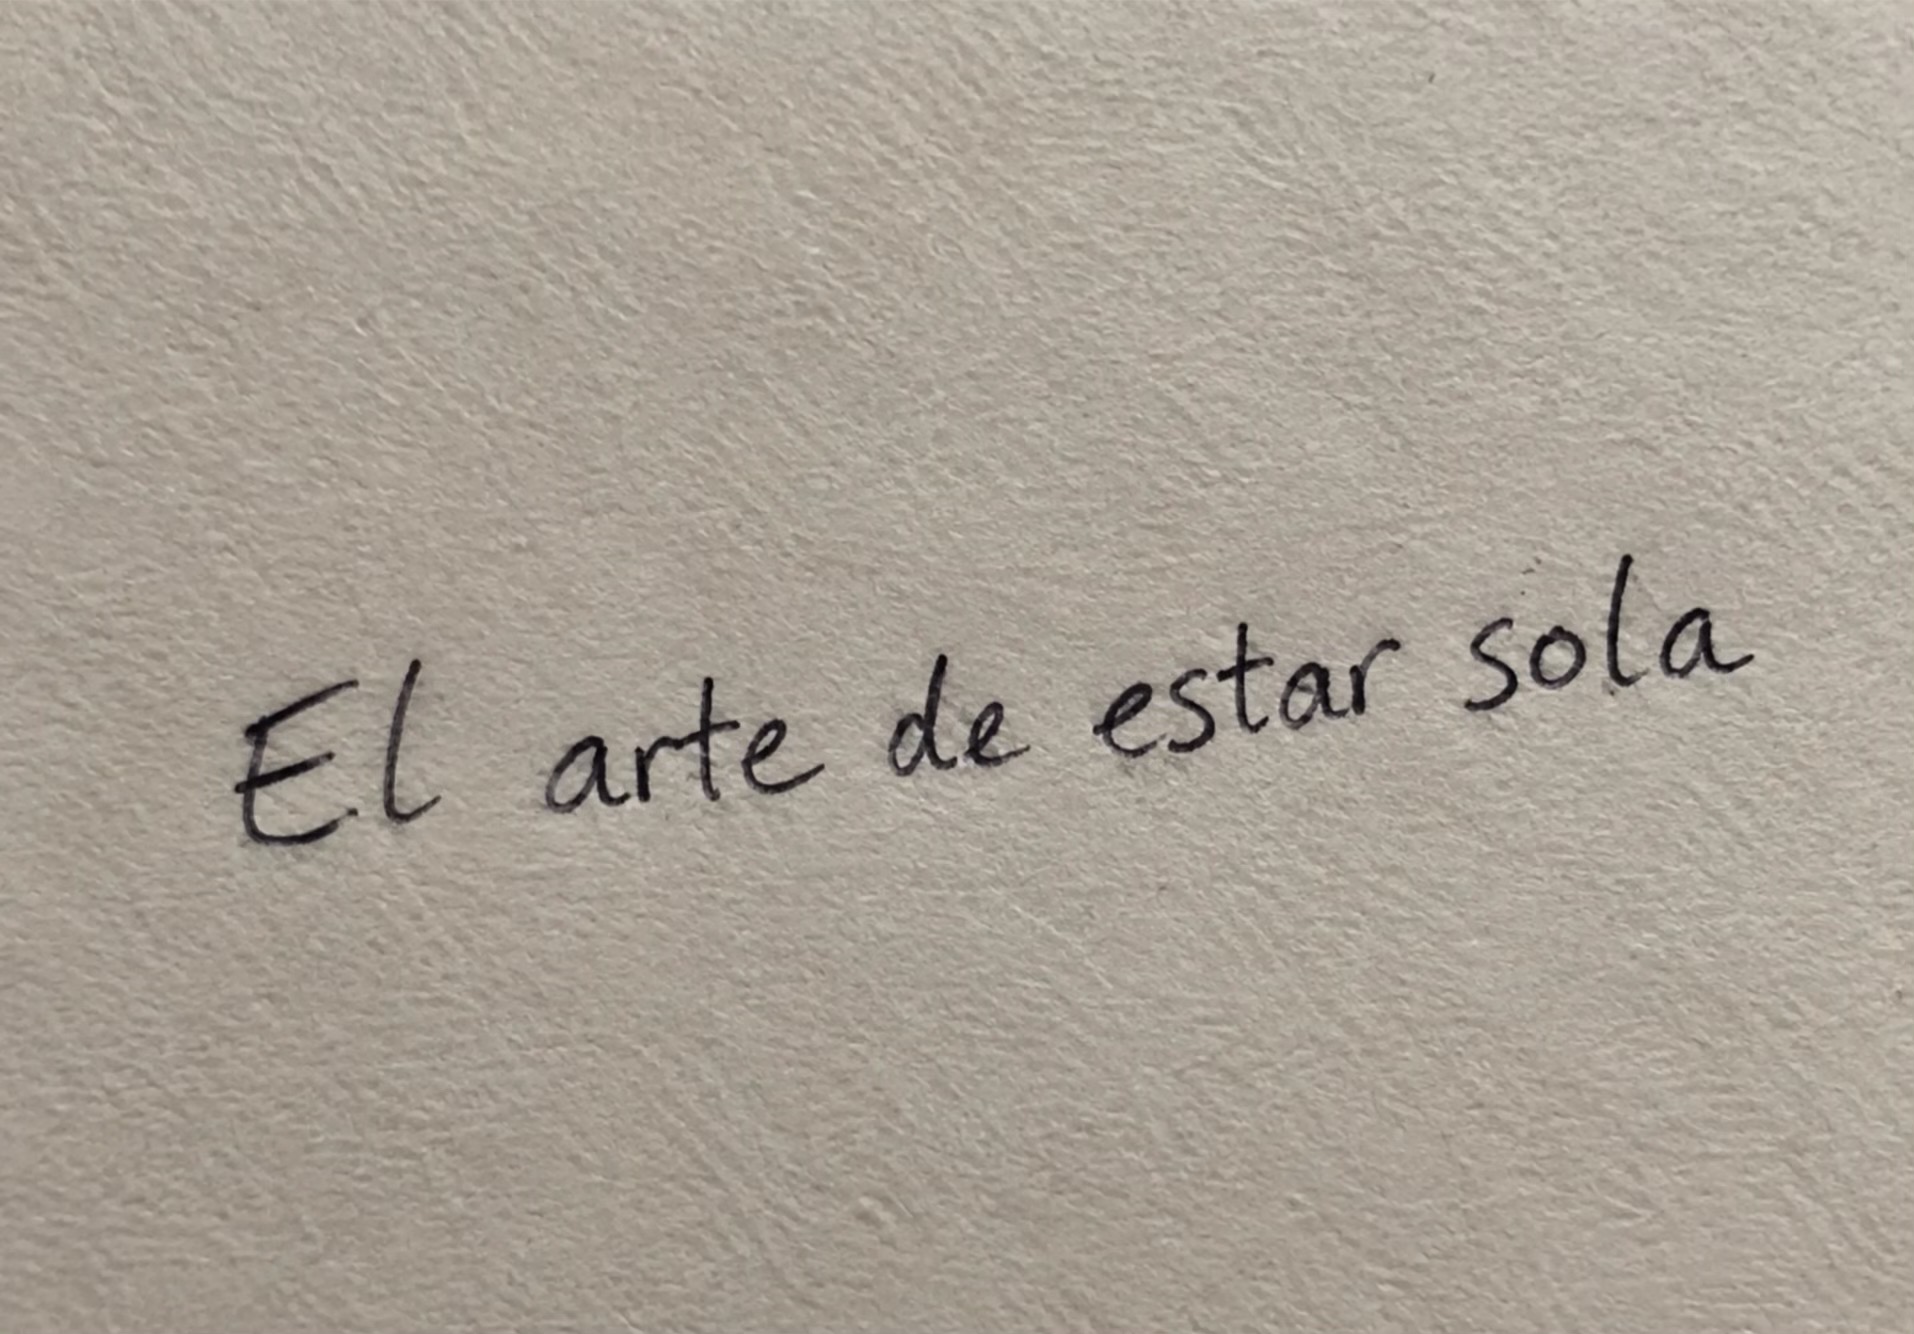 El arte de estar sola